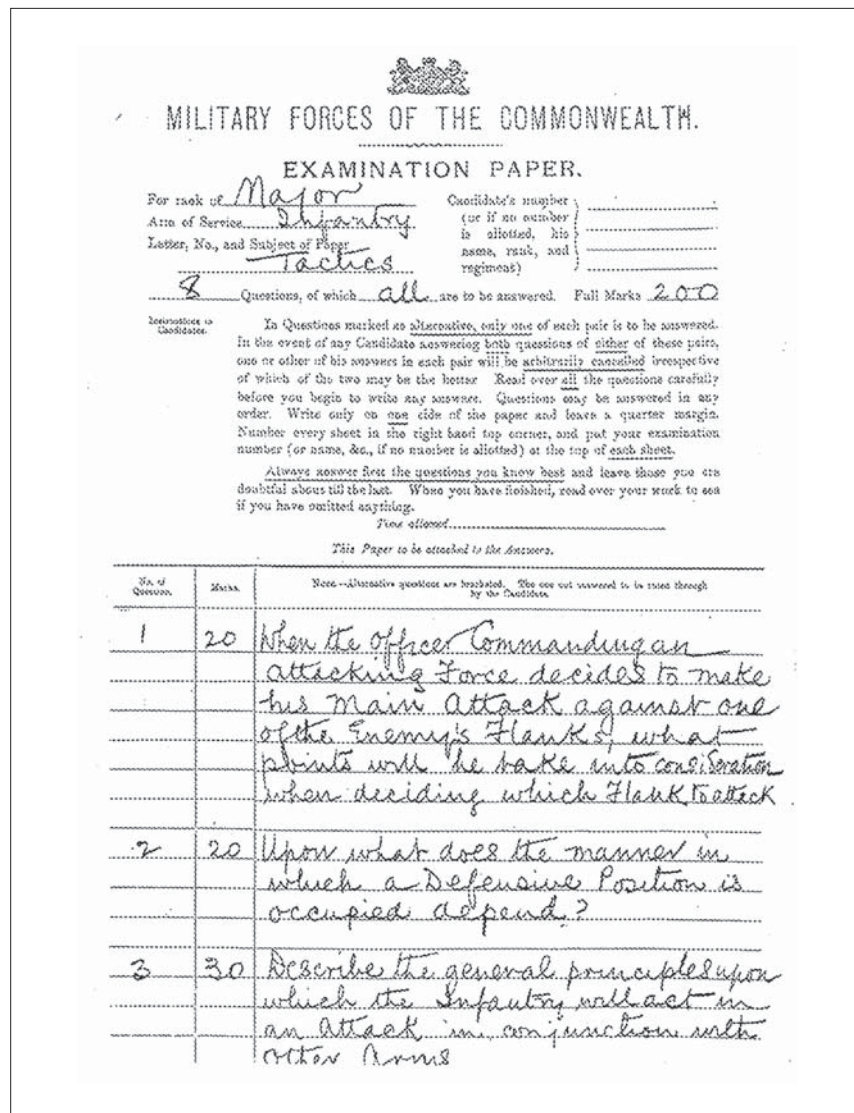 MILITARY FORCES OF THE COMMONWEALTH.
EXAMINATION PAPER.
For rank of Major
Arm of Service Infantry
Letter, No., and Subject of Paper
Tactics
Candidate's number
(or if no number
is allotted, his
name, rank, and
regiment)
8 Questions, of which all are to be answered. Full Marks 200
Instructions to
Candidates.
In Questions marked as alternative, only one of each pair is to be answered.
In the event of any Candidate answering both questions of either of these pairs,
one or other of his answers in each pair will be arbitrarily cancelled irrespective
of which of the two may be the better Read over all the questions carefully
before you begin to write any answers. Questions may be answered in any
order. Write only on one side of the paper and leave a quarter margin.
Number every sheet in the right hand top corner, and put your examination
number (or name, &c., if no number is allotted) at the top of each sheet.
Always answer first the questions you know best and leave those you are
doubtful about till the last. When you have finished, read over your work to see
if you have omitted anything.
Time allowed
This Paper to be attached to the Answers.
No. of
Question.
Marks.
Note.—Alternative questions are bracketed. The one not answered to be ruled through
by the Candidate.
1 20 When the Officer Commanding an
attacking Force decides to make
his Main Attack against one
of the Enemy's Flanks, what
points will he take into consideration
when deciding which Flank to attack
2 20 Upon what does the manner in
which a Defensive Position is
occupied depend?
3 30 Describe the general principles upon
which the Infantry will act in
an Attack in conjunction with
other Arms